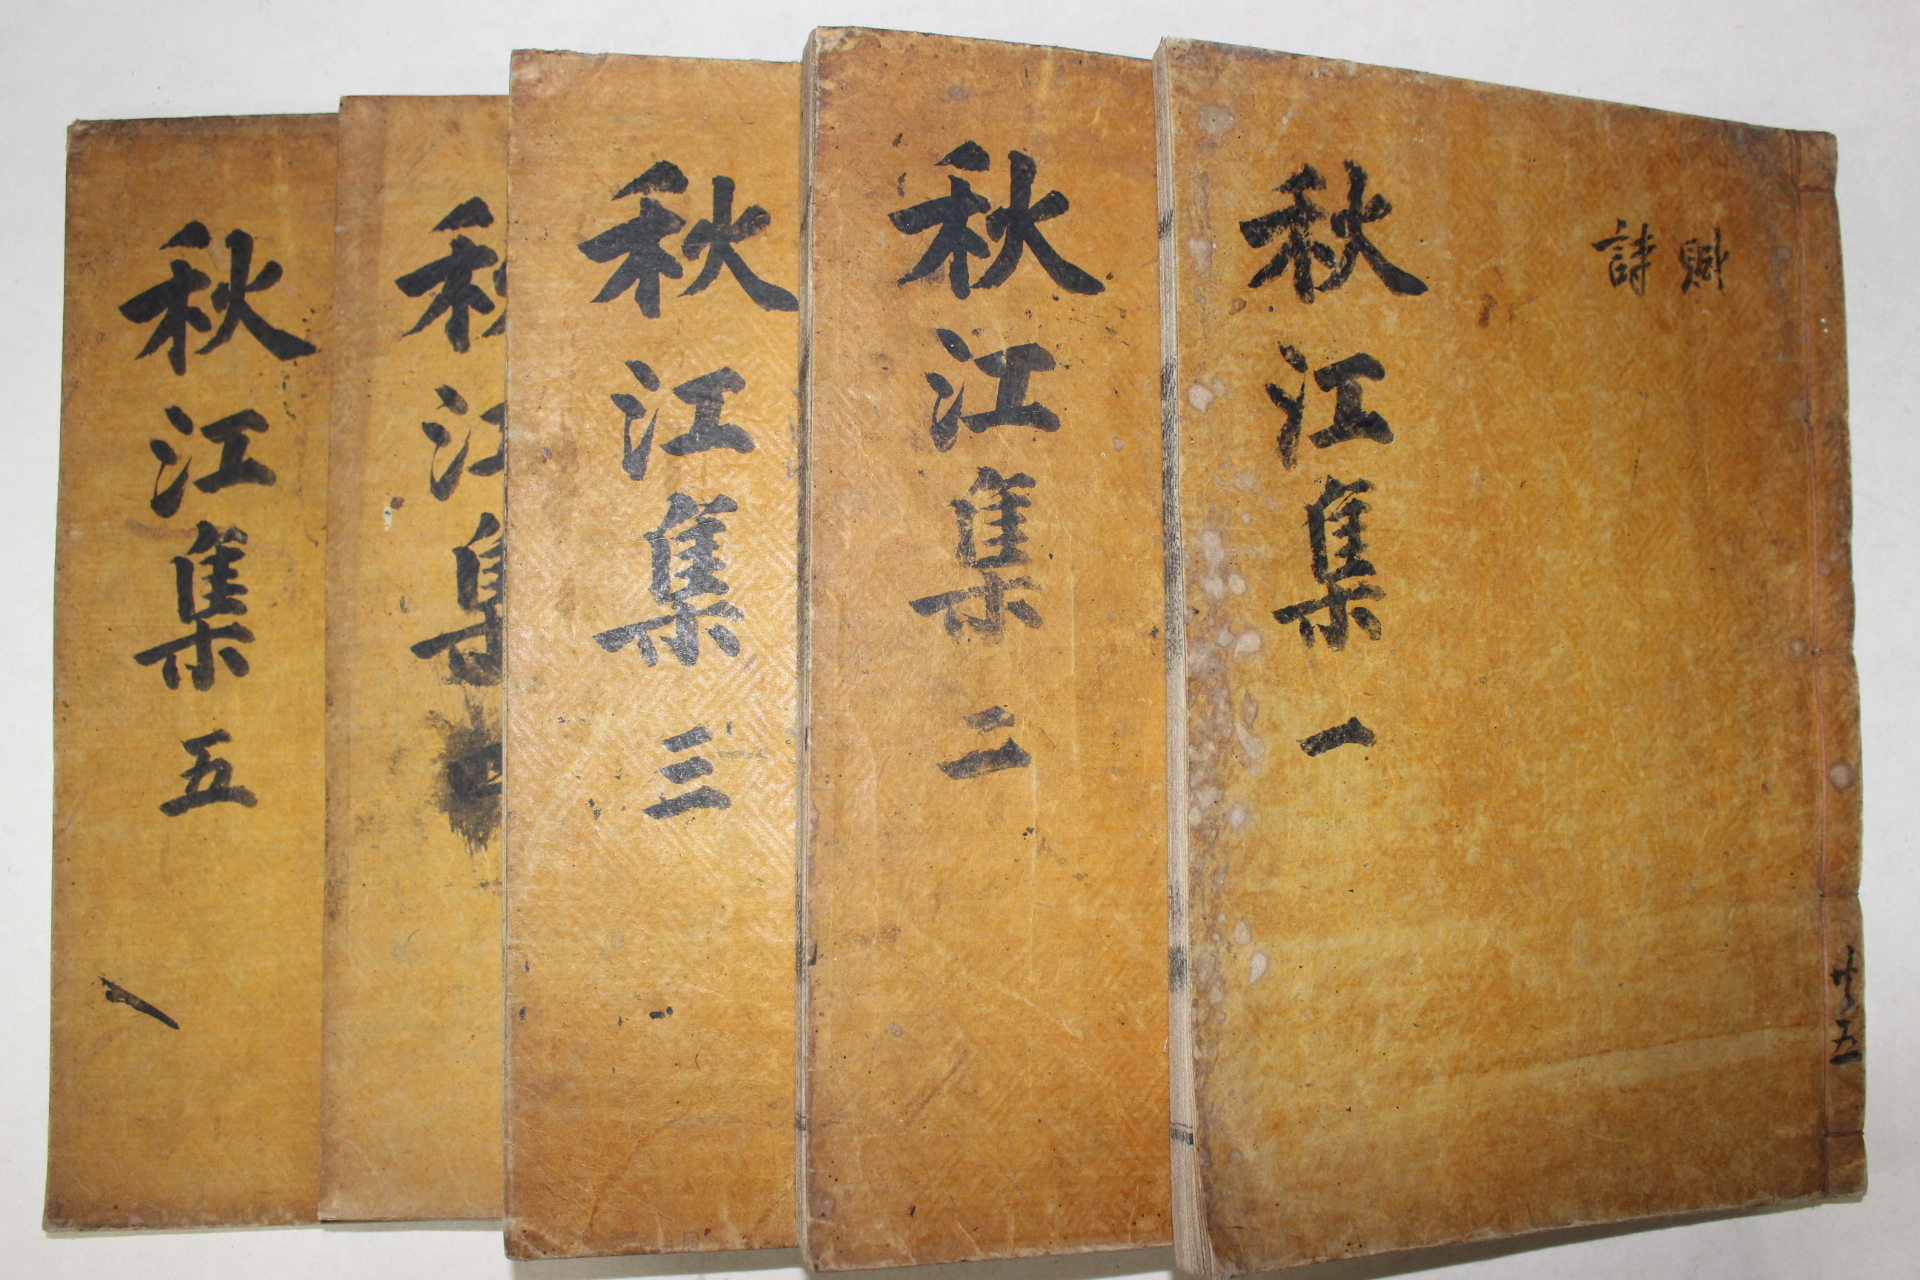 賦
詩
秋江集 一
共五
秋江集 二
秋江集 三
秋江集
秋江集 五